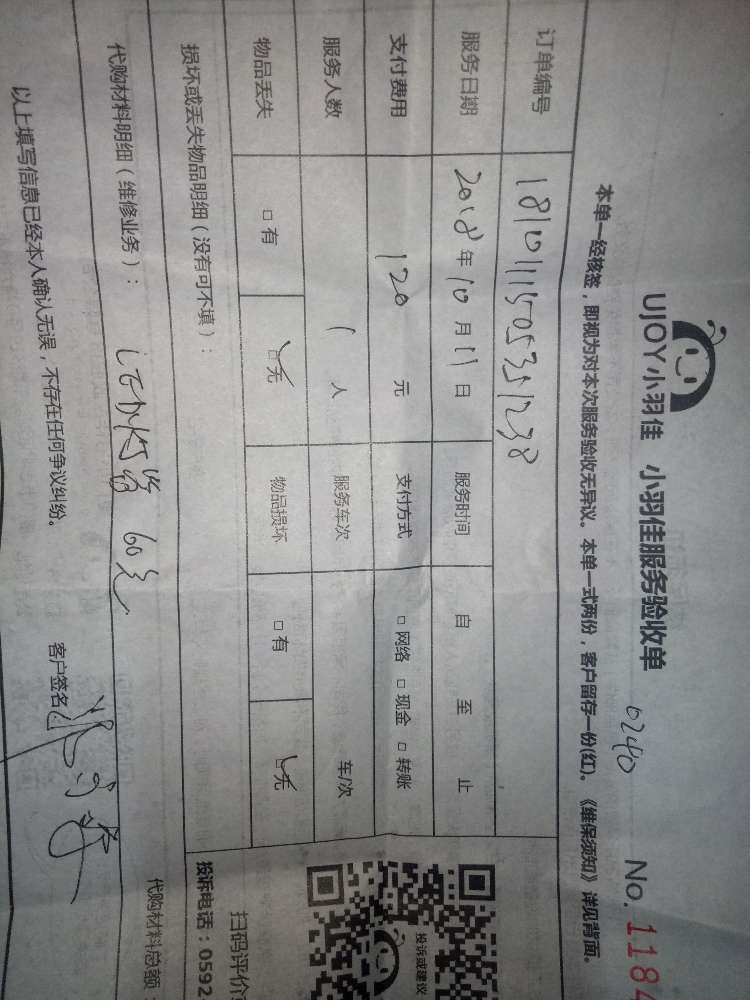 UJOY小羽佳 小羽佳服务验收单 0240 No. 1184
本单一经核签，即视为对本次服务验收无异议。本单一式两份，客户留存一份(红)。《维保须知》详见背面。
订单编号 1810111505351238
服务日期 2018年10月11日 服务时间 自 至 止
支付费用 120 元 支付方式 □网络 □现金 □转账
服务人数 1 人 服务车次 车/次
物品丢失 □有 ☑无 物品损坏 □有 ☑无
损坏或丢失物品明细（没有可不填）：
代购材料明细（维修业务）： LED灯 60元 代购材料总额
以上填写信息已经本人确认无误，不存在任何争议纠纷。 客户签名
投诉或建议
扫码评价
投诉电话：0592